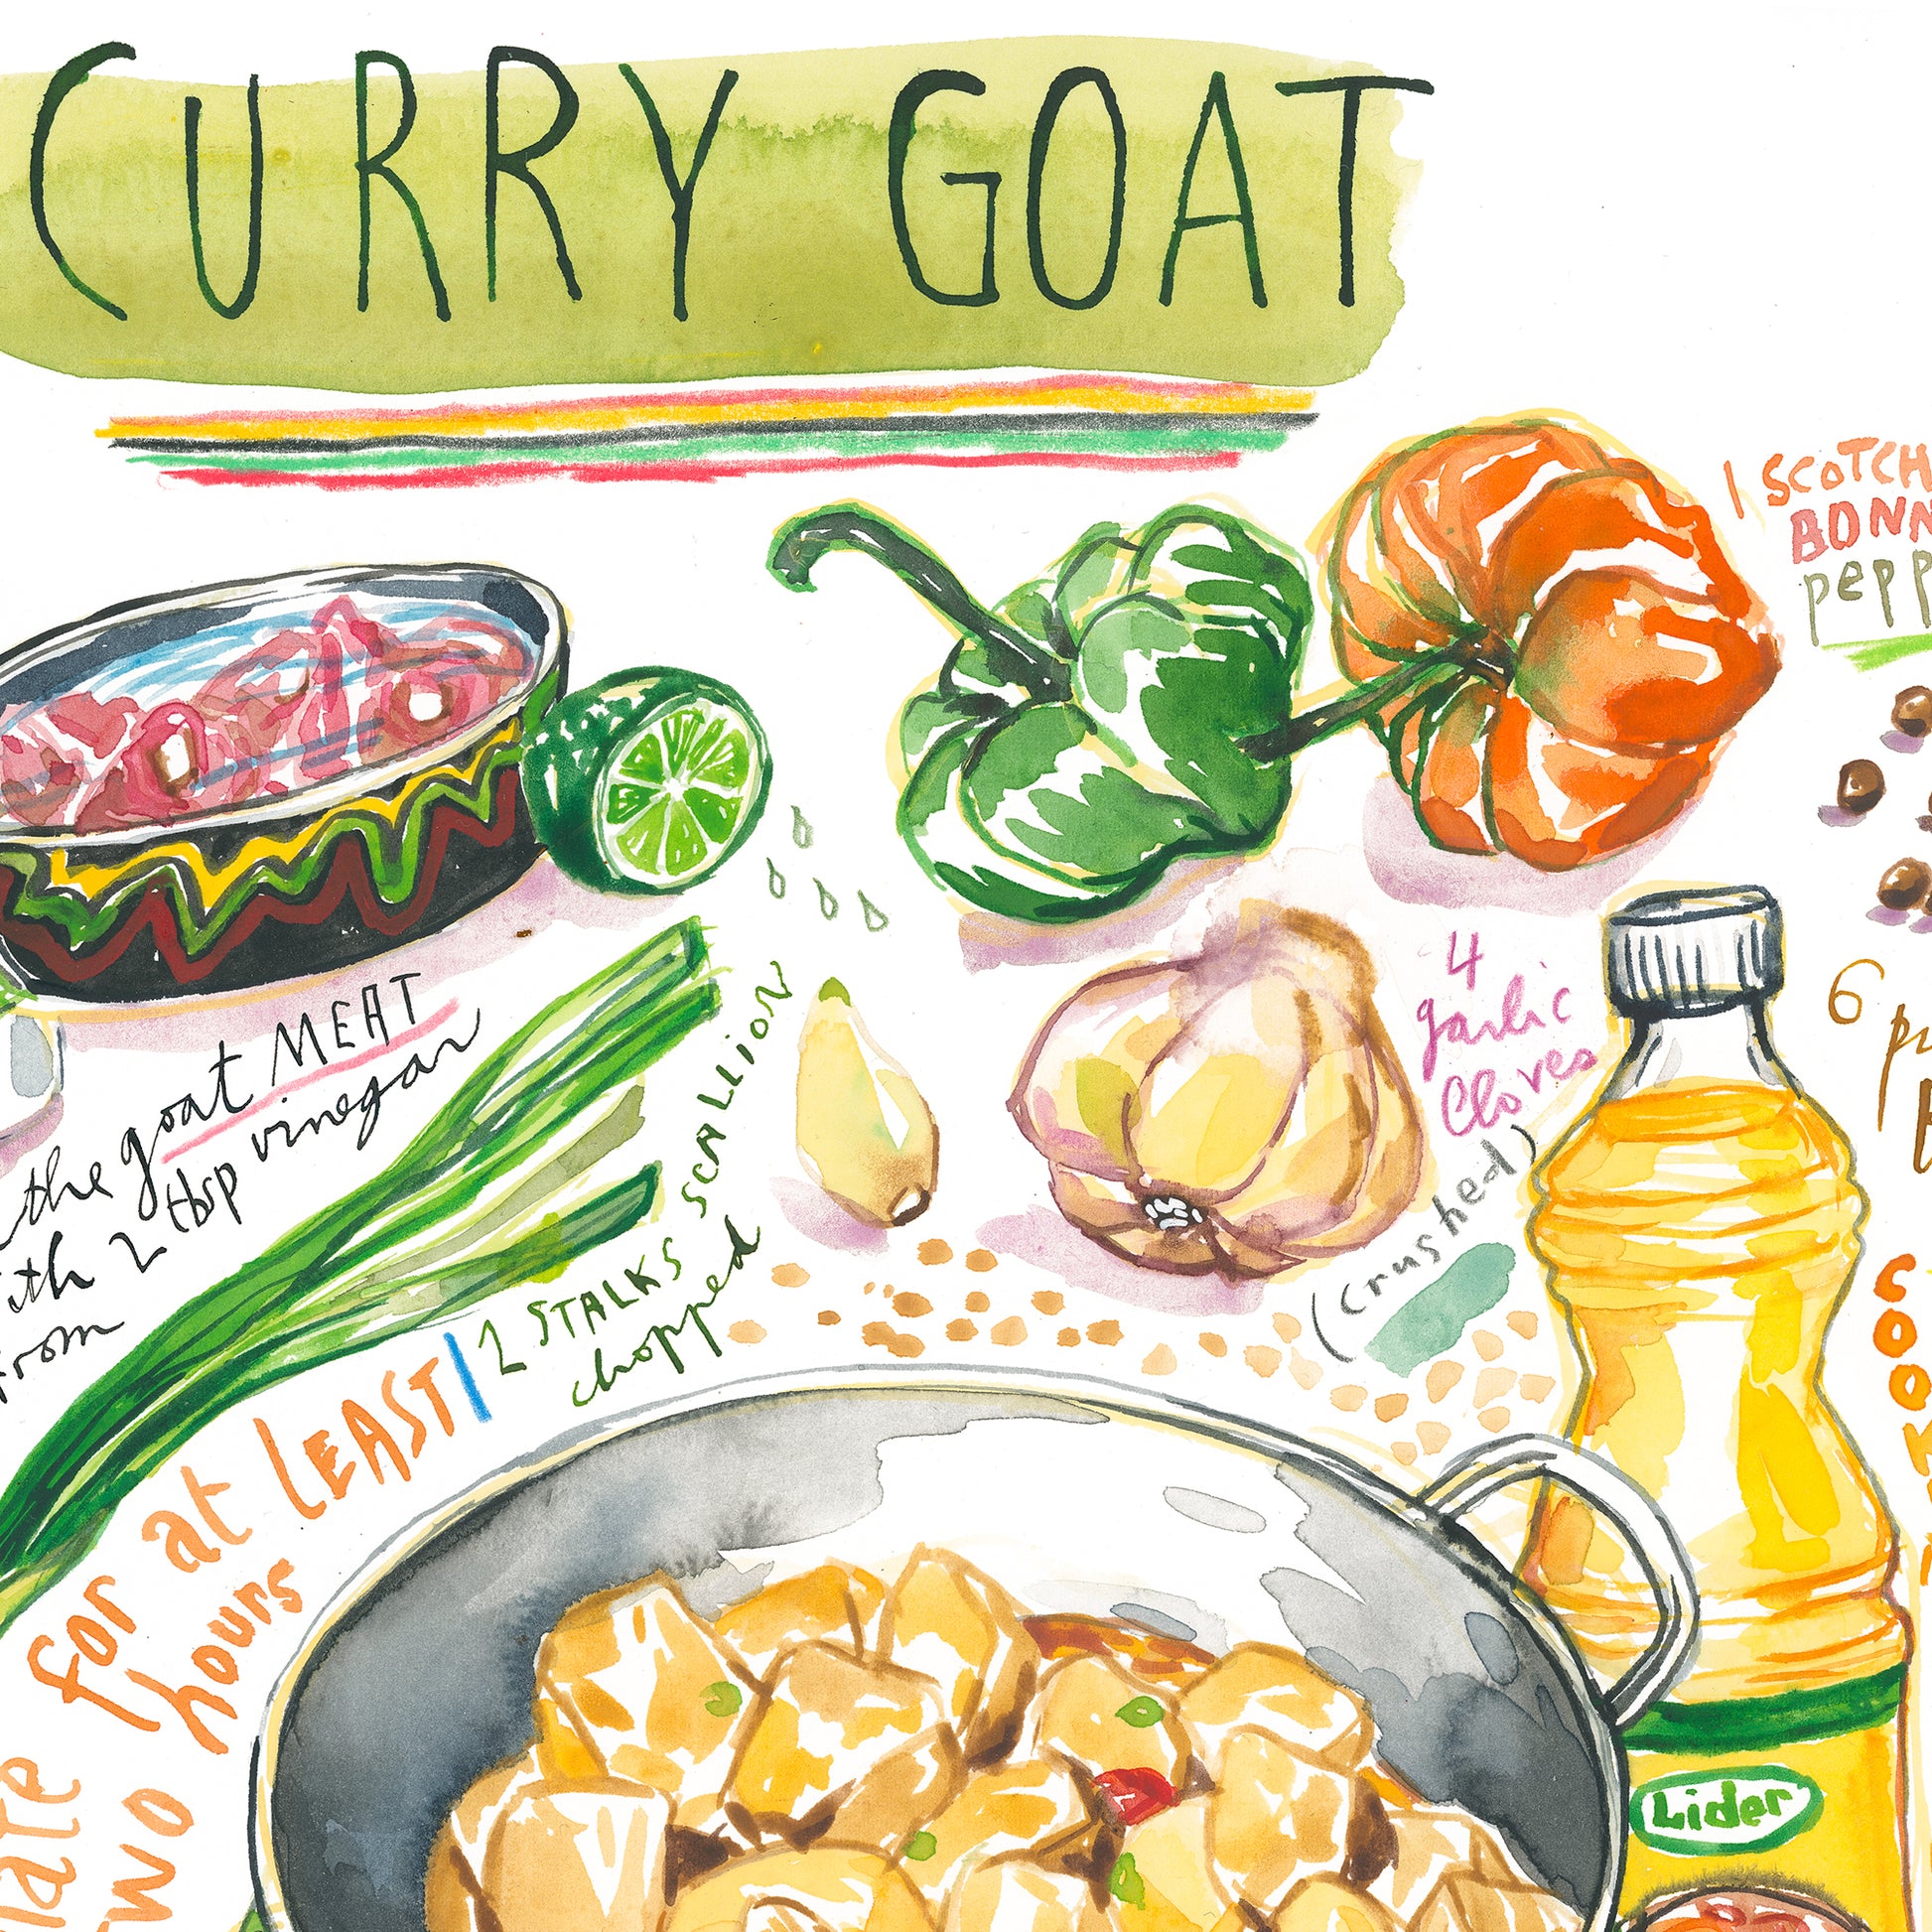 CURRY GOAT
1 SCOTCH
BONN
pepp
the goat MEAT
ith 2 tbsp vinegar
from
2 STALKS SCALLION
chopped
4
garlic
Cloves
(crushed)
6
for at LEAST
hours
TWO
COOK
Lider